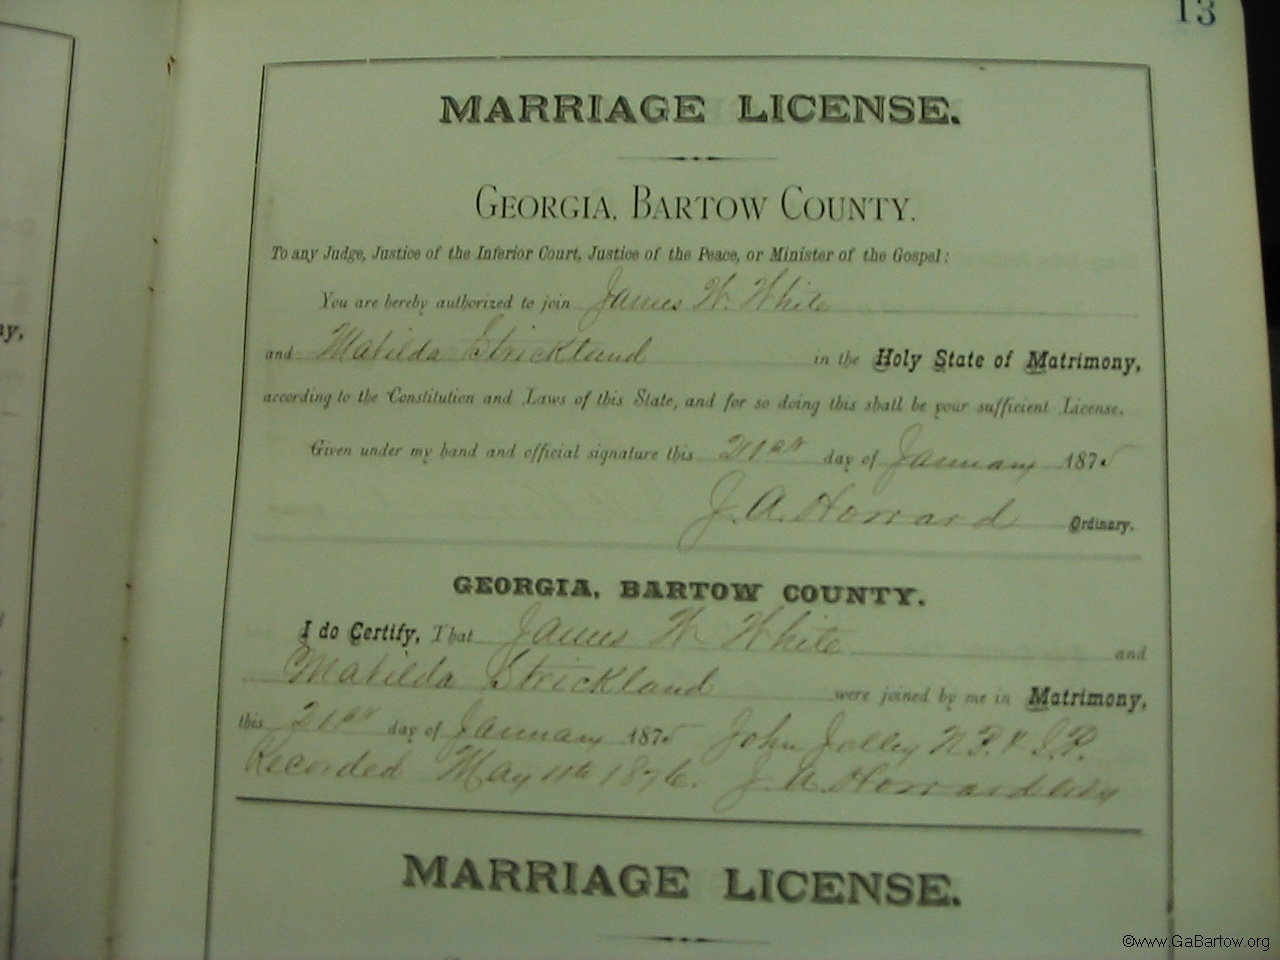 13
MARRIAGE LICENSE.
GEORGIA, BARTOW COUNTY.
To any Judge, Justice of the Inferior Court, Justice of the Peace, or Minister of the Gospel:
You are hereby authorized to join James W. White
and Matilda Strickland in the Holy State of Matrimony,
according to the Constitution and Laws of this State, and for so doing this shall be your sufficient License.
Given under my hand and official signature this 21st day of January 1875
J. A. Howard Ordinary.
GEORGIA, BARTOW COUNTY.
I do Certify, That James W White and
Matilda Strickland were joined by me in Matrimony,
this 21st day of January 1875 John Jolley N.P. & J.P.
Recorded May 11th 1876. J. A. Howard Ordy
MARRIAGE LICENSE.
©www.GaBartow.org